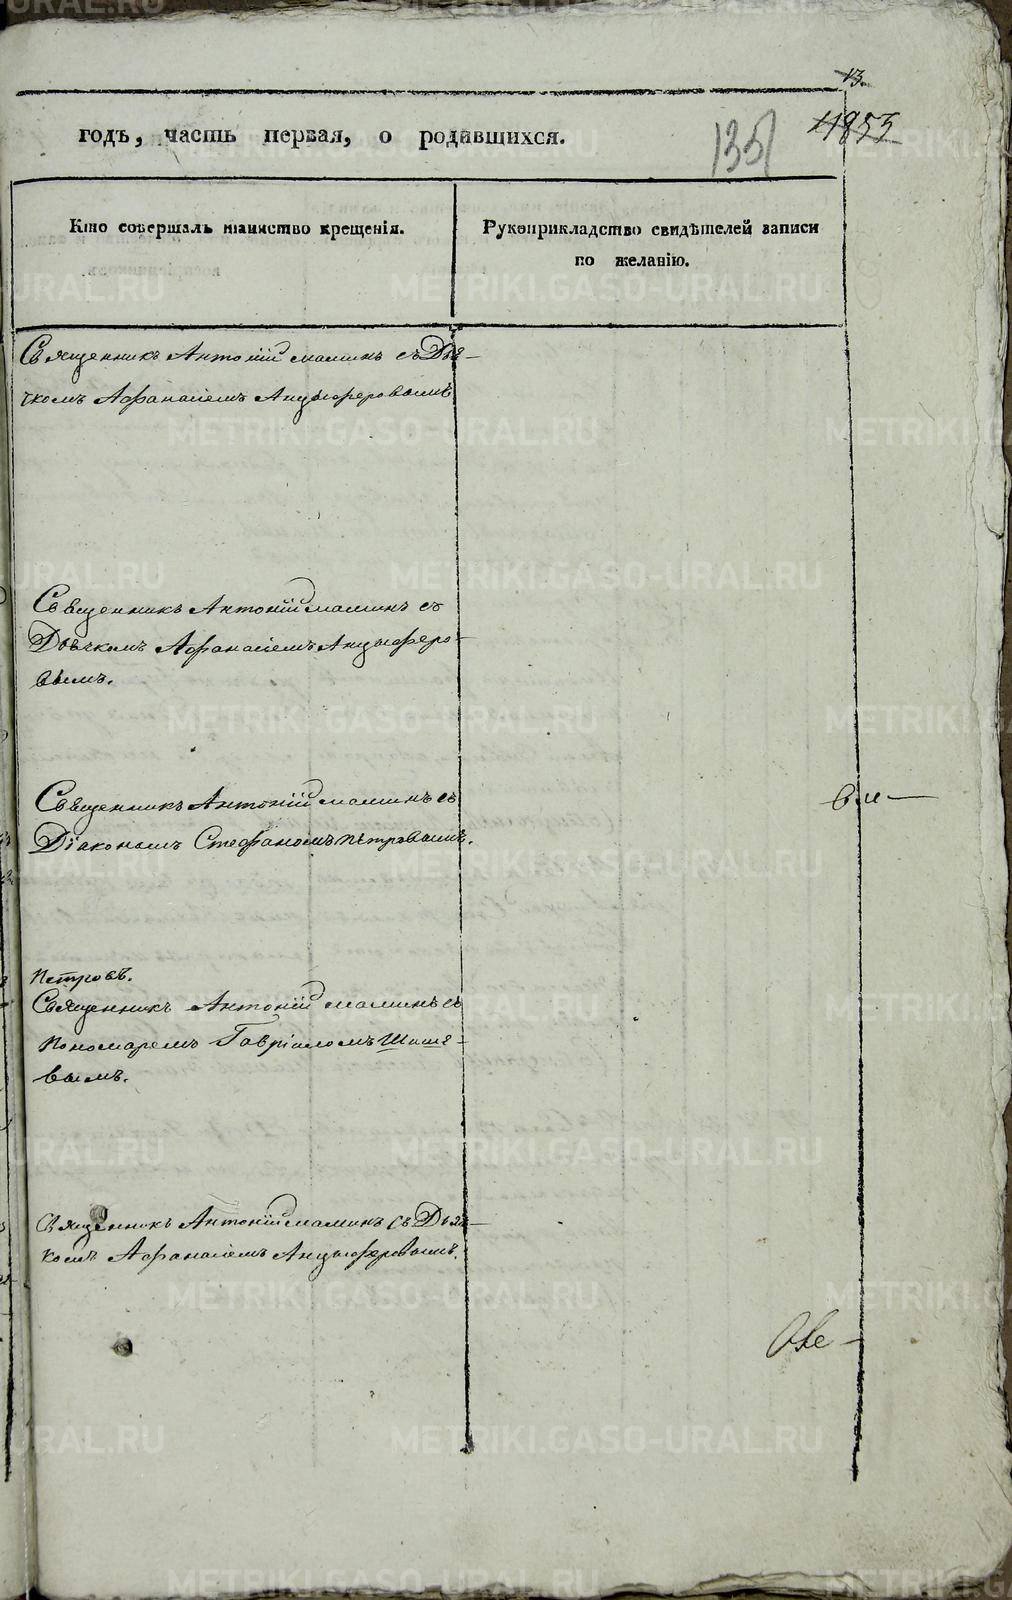 13.
годъ, часть первая, о родившихся.
135
1853
Кто совершалъ таинство крещенія.
Рукоприкладство свидѣтелей записи
по желанію.
Священникъ Антоній Маминъ съ Дья-
чкомъ Афанасіемъ Анцыферовымъ
Священникъ Антоній Маминъ съ
Дьячкомъ Афанасіемъ Анцыферо-
вымъ.
Священникъ Антоній Маминъ съ
Діакономъ Стефаномъ Петровымъ.
Петровъ.
Священникъ Антоній Маминъ съ
Пономаремъ Гавріиломъ Шише-
вымъ.
Священникъ Антоній Маминъ съ Дьяч-
комъ Афанасіемъ Анцыферовымъ.
METRIKI.GASO-URAL.RU